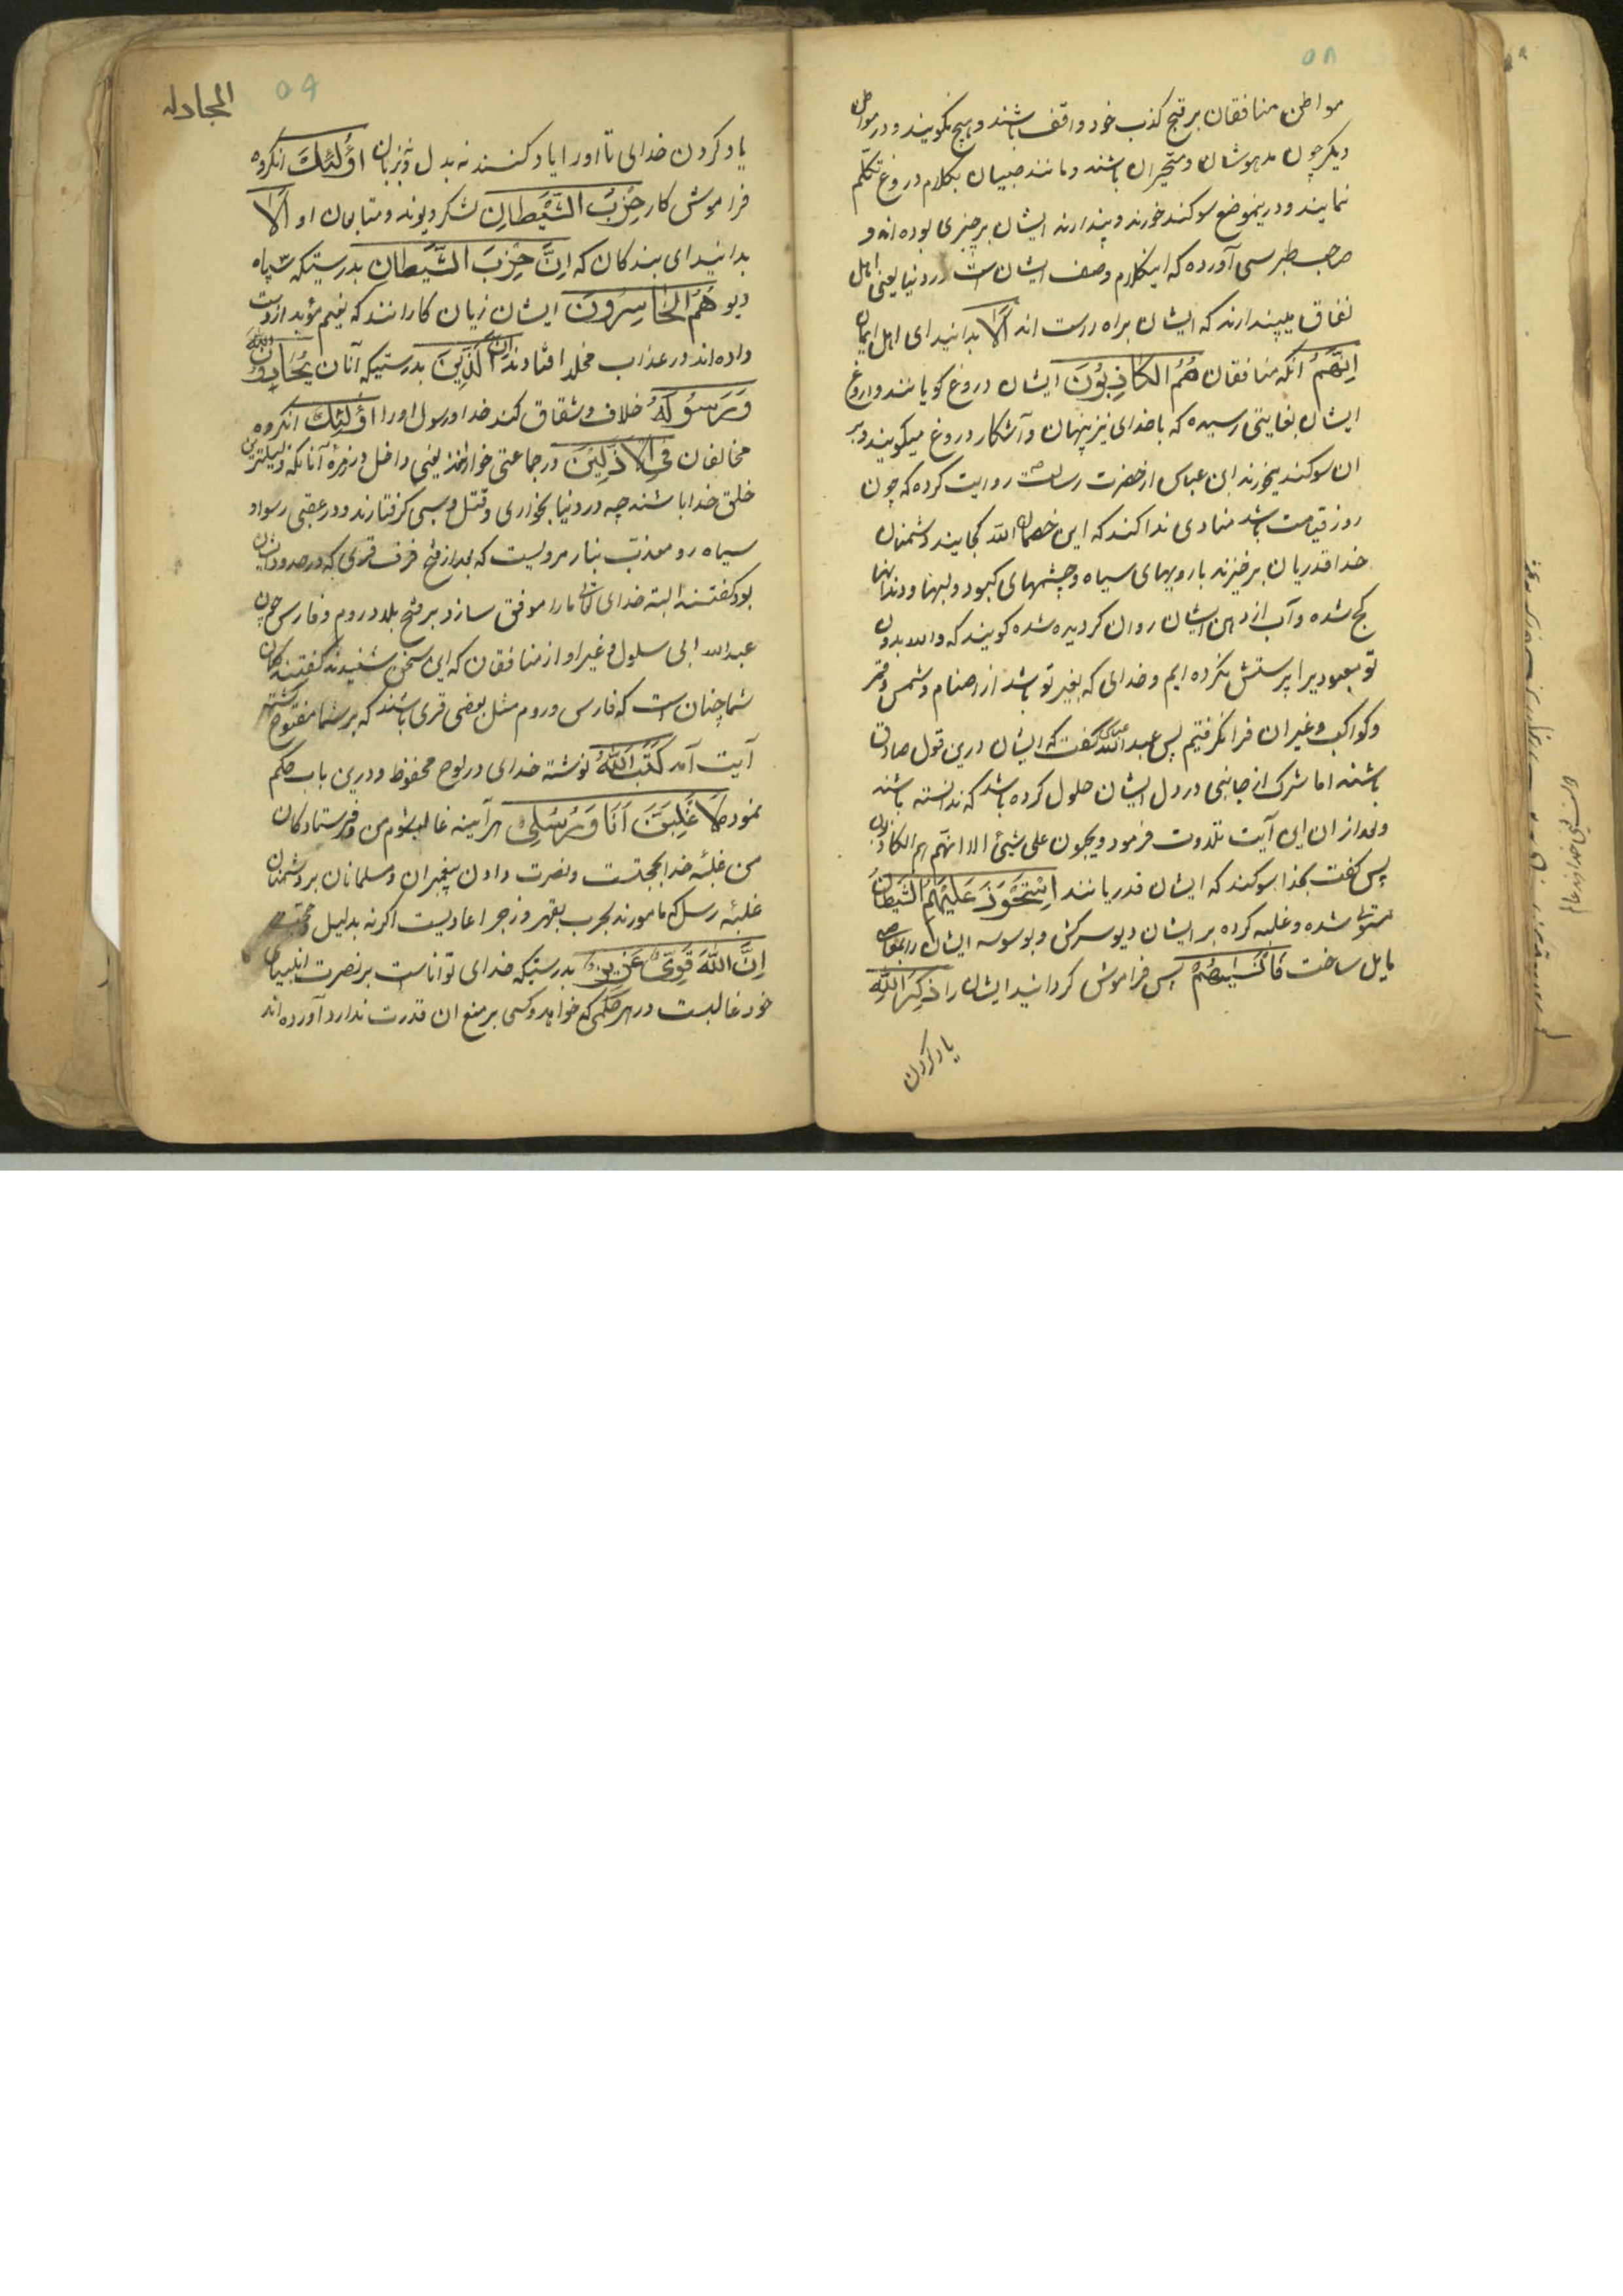 ۵۸
مواطن منافقان بر قبح کذب خود واقف باشند و هیچ نکویند و در مواطن
دیکر چون مدهوشان و متحیران باشند و مانند صبیان بکلام دروغ تکلم
نمایند و درینموضع سوکند خورند و پندارند ایشان بر چیزی بوده اند و
صاحب طبرسی آورده که اینکلام وصف ایشان است در دنیا یعنی اهل
نفاق میپندارند که ایشان براه راست اند اَلَا بدانید ای اهل ایمان
اِنَّهُمْ آنکه منافقان هُمُ الْكَاذِبُونَ ایشان دروغ کویانند و دروغ
ایشان بغایتی رسیده که با خدای نیز پنهان و آشکار دروغ میکویند و بر
ان سوکند میخورند ابن عباس از حضرت رسالت روایت کرده که چون
روز قیامت باشد منادی ندا کند که این خصماء الله کجایند دشمنان
خدا قدریان برخیزند با رویهای سیاه و چشمهای کبود و لبها و دندانها
کج شده و آب از دهن ایشان روان کردیده شده کویند که والله بدون
تو معبودیرا پرستش نکرده ایم و خدای که بغیر تو باشد از اصنام و شمس و قمر
و کواکب و غیر ان فرا نکرفتیم پس عبدالله عباس کفت که ایشان درین قول صادق
باشند اما شرک از جانبی در دل ایشان حلول کرده باشد که ندانسته باشند
و بعد از ان این آیت تلاوت فرمود و یحسبون علی شیئ الا انهم هم الکاذبون
پس کفت بخدا سوکند که ایشان قدریانند اِسْتَحْوَذَ عَلَيْهِمُ الشَّيْطَانُ
مستولی شده و غلبه کرده بر ایشان دیو سرکش و بوسوسه ایشان را بمعاصی
مایل ساخت فَاَنْسٰیهُمْ پس فراموش کردانید ایشان را ذِكْرَ اللّٰهِ
یاد کردن
المجادله
۵۹
یاد کردن خدای تا او را یاد کنند نه بدل و نه بزبان اُولٰئِكَ انکروه
فراموش کار حِزْبُ الشَّيْطَانِ لشکر دیوند و متابعان او اَلَا
بدانید ای بندکان که اِنَّ حِزْبَ الشَّيْطَانِ بدرستیکه سپاه
دیو هُمُ الْخَاسِرُونَ ایشان زیان کارانند که نعیم مؤبد از دست
داده اند و در عذاب مخلد افتادند اِنَّ الَّذِينَ بدرستیکه آنان یُحَادُّونَ اللهَ
وَرَسُولَهُ خلاف و شقاق کنند خدا و رسول او را اُولٰئِكَ انکروه
مخالفان فِي الْاَذَلِّينَ در جماعتی خوارانند یعنی داخل در زمرۀ آنانکه ذلیلترین
خلق خدا باشند چه در دنیا بخواری و قتل و سبی کرفتارند و در عقبی رسوا و
سیاه رو معذب بنار مرویست که بعد از فتح قری که در صدد
بود کفتند البته خدای تعالی ما را موفق سازد بر فتح بلاد روم و فارس چون
عبدالله ابی سلول و غیر او از منافقان که این سخن شنیدند کفتند کمان
شما چنان است که فارس و روم مثل بعضی قری باشند که بر شما مفتوح کشته
آیت آمد كَتَبَ اللّٰهُ نوشته خدای در لوح محفوظ و درین باب حکم
نموده لَاَغْلِبَنَّ اَنَا وَرُسُلِي هر آینه غالب شوم من و فرستادکان
من غلبۀ خدا بحجتست و نصرت دادن پیغمبران و مسلمانان بر دشمنان
غلبۀ رسل که مامورند بحرب بقهر و زجر اعادیست اکر نه بدلیل و حجت
اِنَّ اللّٰهَ قَوِيٌّ عَزِيزٌ بدرستیکه خدای تواناست بر نصرت انبیاء
خود غالبست در هر حکمی که خواهد و کسی بر منع ان قدرت ندارد آورده اند